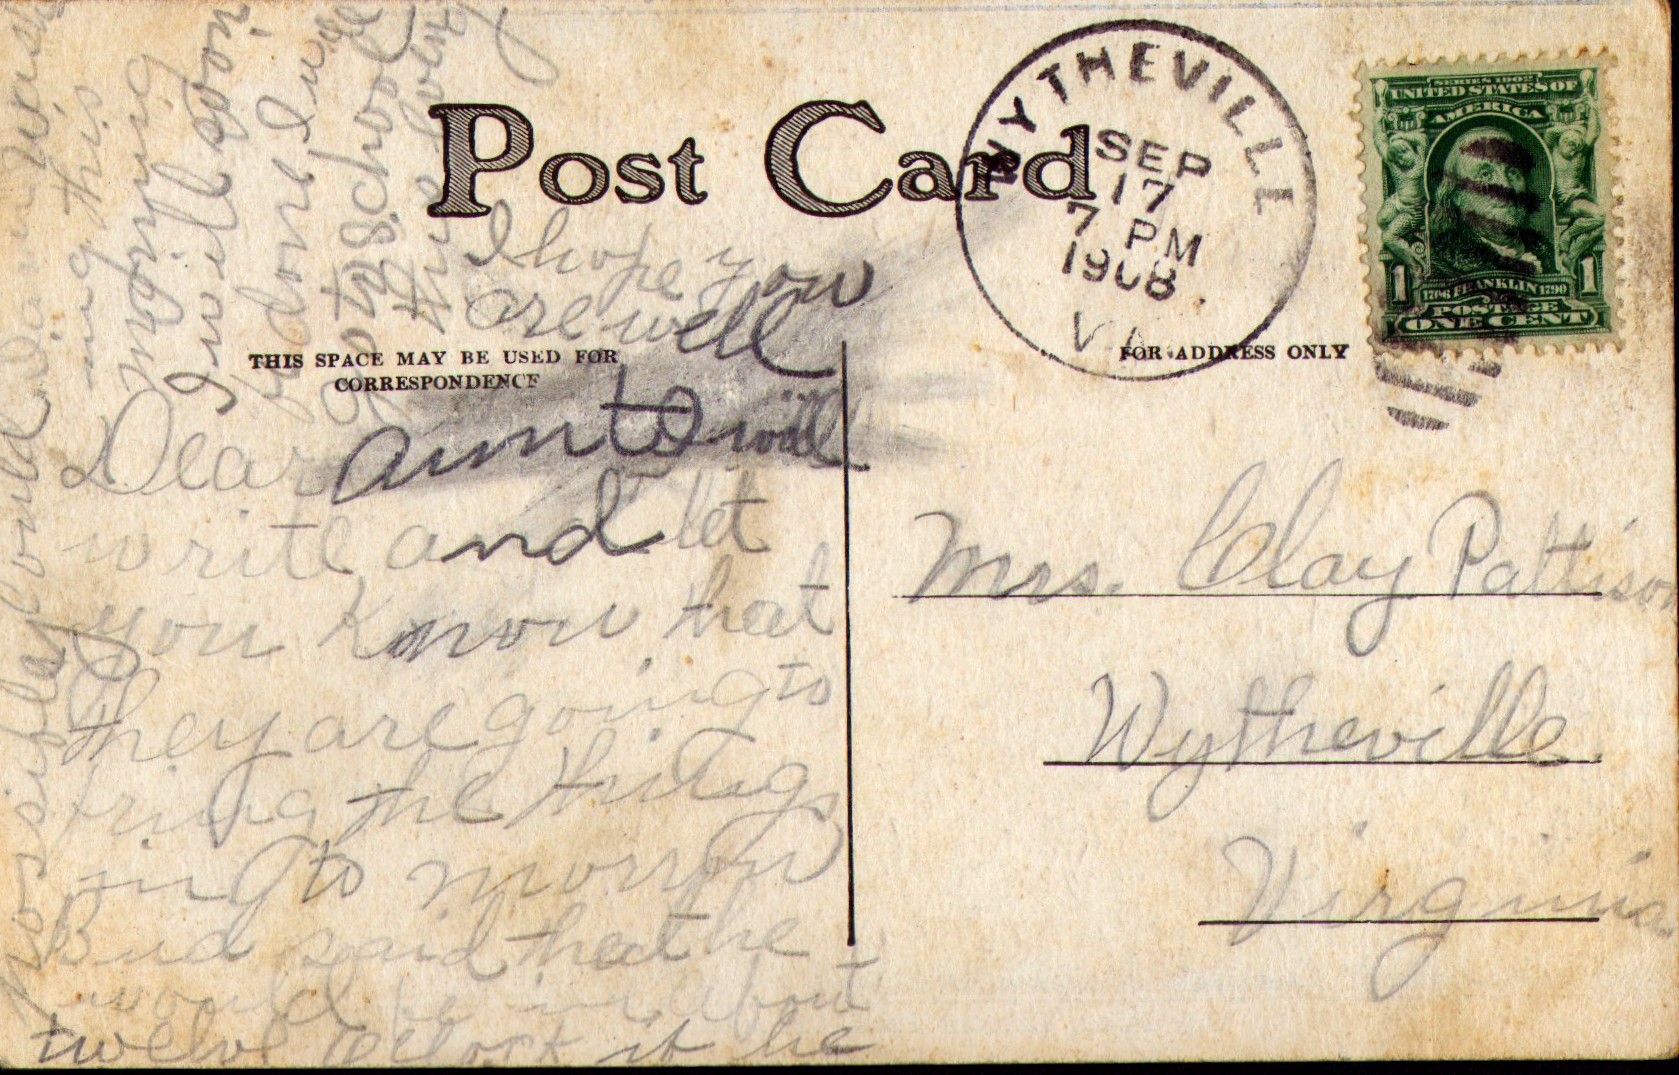 Post Card
WYTHEVILLE
SEP
17
7 PM
1908
VA.
SERIES 1902
UNITED STATES OF
AMERICA
1 1
1706 FRANKLIN 1790
POSTAGE
ONE CENT
THIS SPACE MAY BE USED FOR
CORRESPONDENCE
FOR ADDRESS ONLY
I hope you
are well
Dear aunt will
write and let
you know that
they are going to
bring the things
in to morrow
Bud said that he
would be in about
twelve oclock if he
possiflay could
ing this
morning
I will soon
be done
school
this
Mrs. Clay Pattison
Wytheville
Virginia